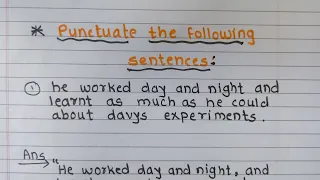 * Punctuate the following
sentences:
① he worked day and night and
learnt as much as he could
about davys experiments.
Ans → "He worked day and night, and